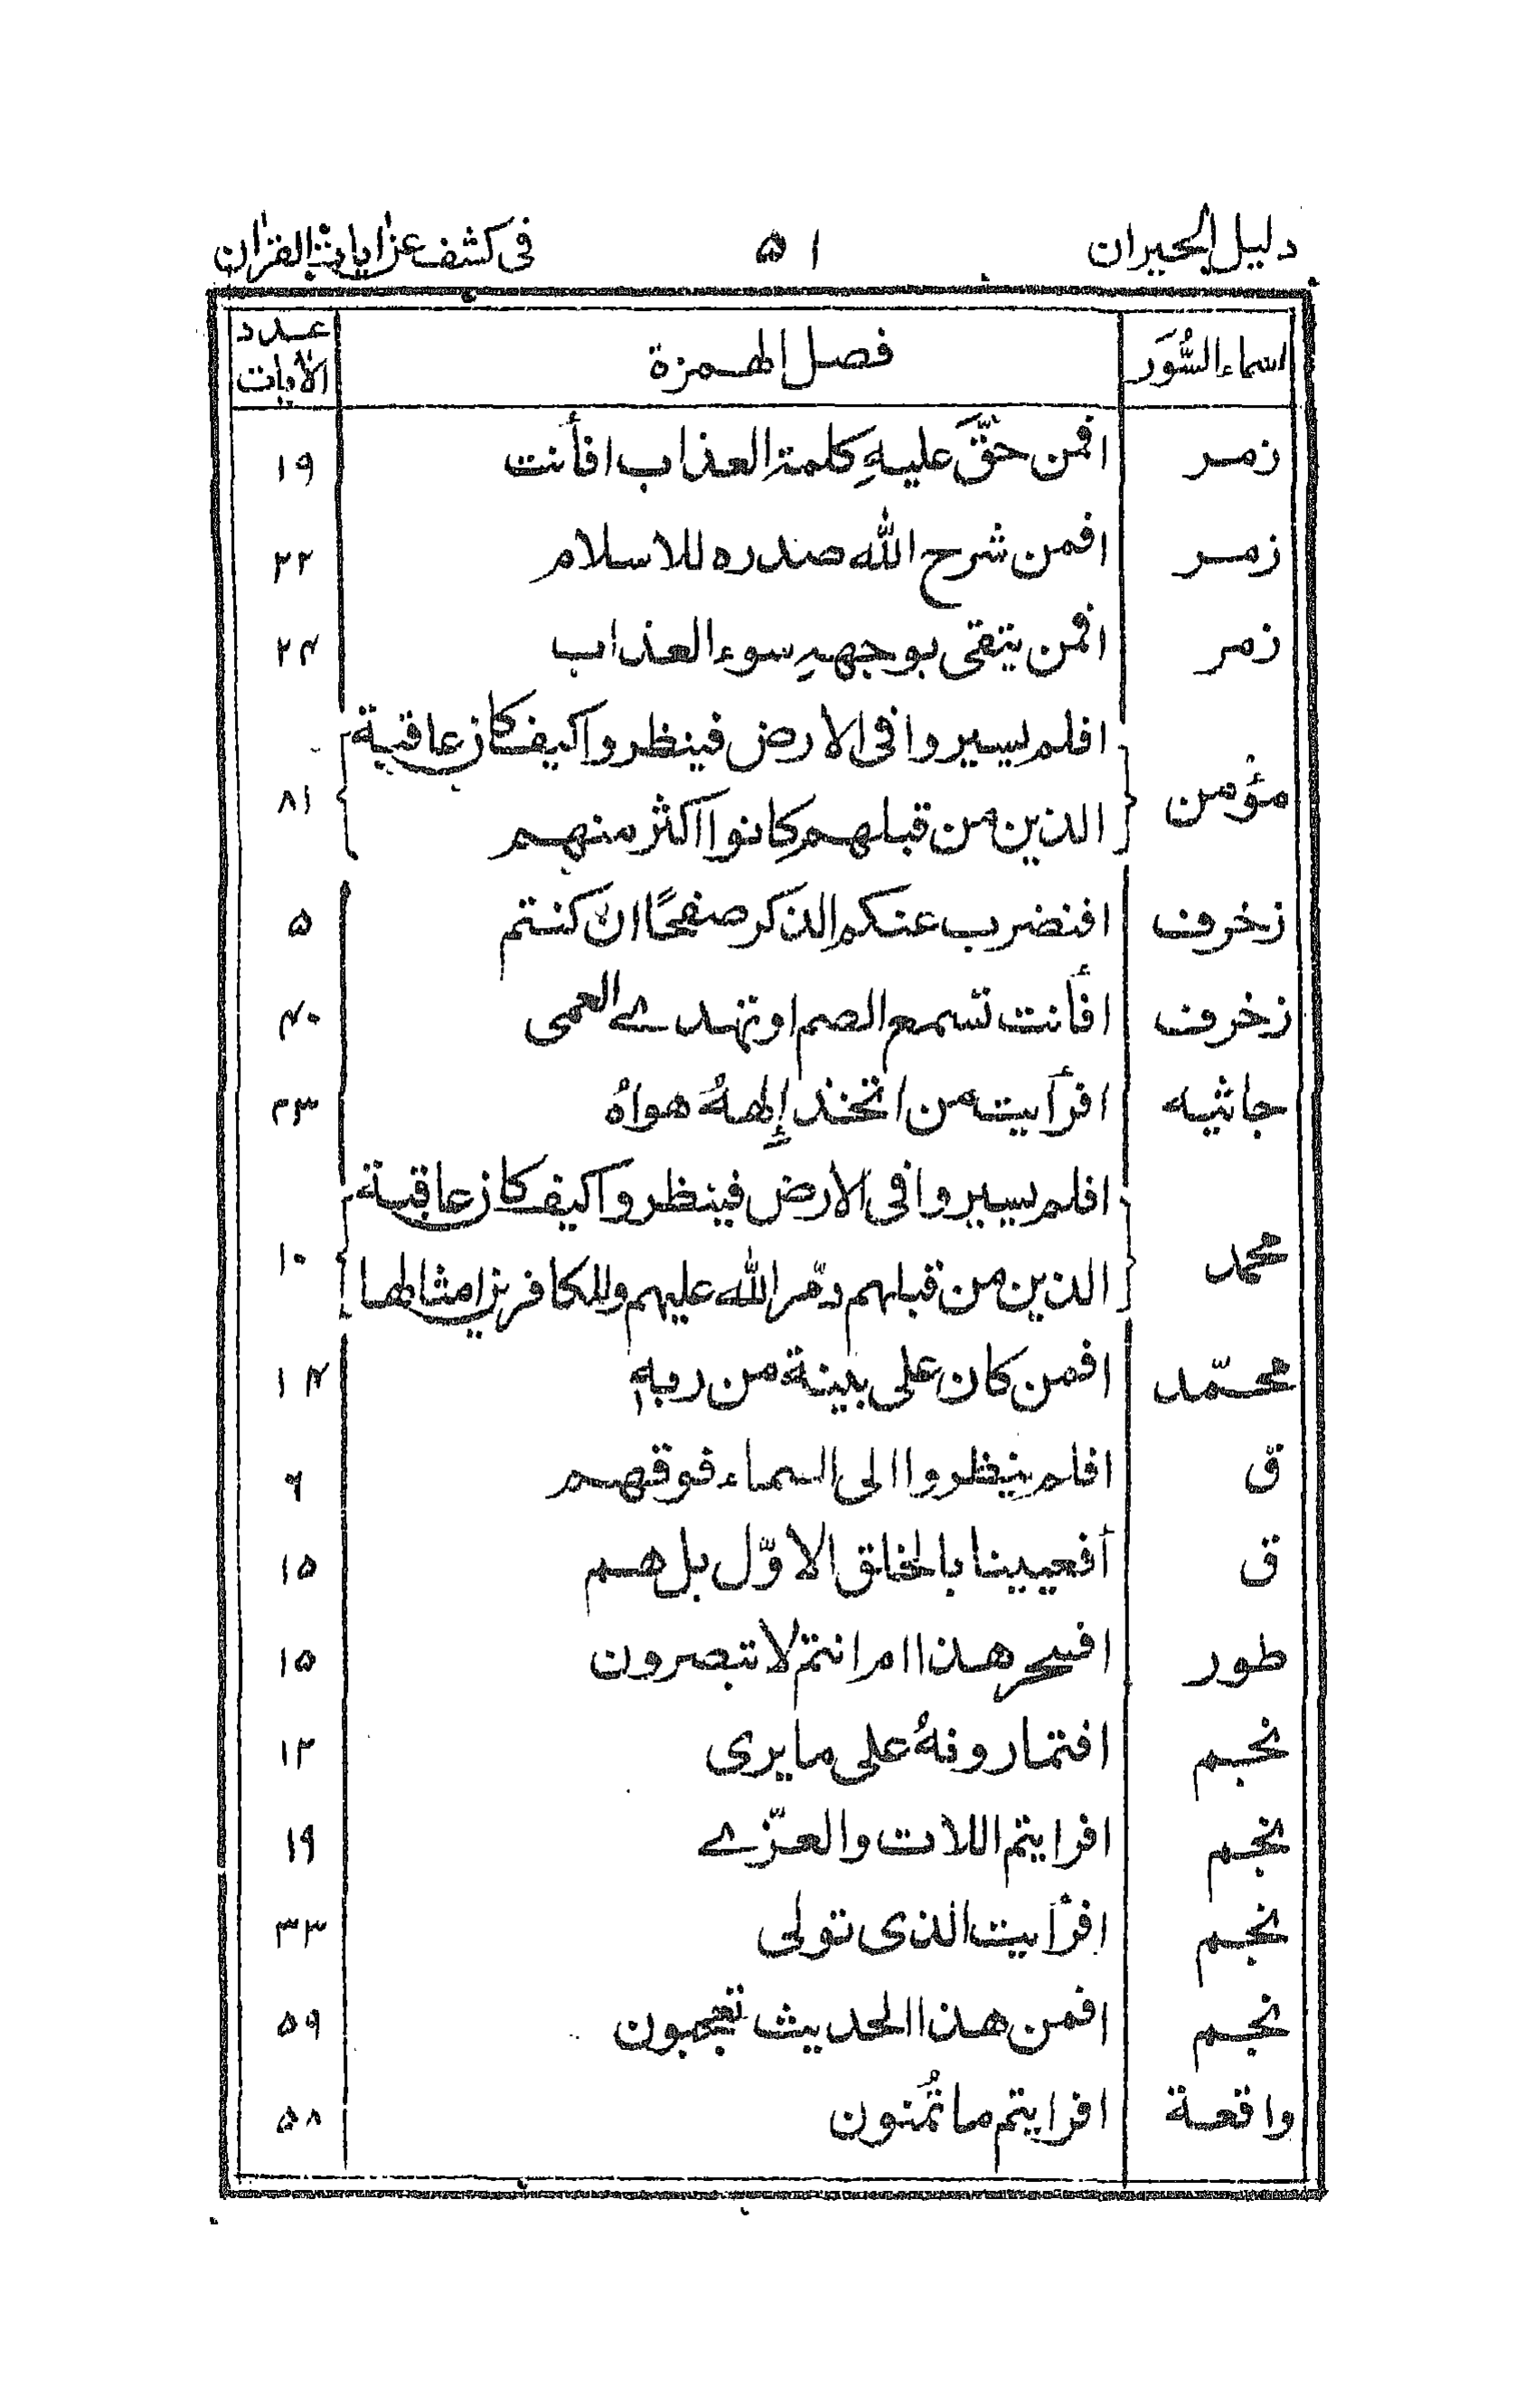 دليل الحيران ٥١ فى كشف عن اٰيات القراٰن
اسماء السُّوَر فصل الهمزة عدد الاٰيات
زمر افمن حقَّ عليهِ كلمة العذاب افأنت ١٩
زمر افمن شرح الله صدره للاسلام ٢٢
زمر افمن يتقى بوجههِ سوء العذاب ٢٤
افلم يسيروا فى الارض فينظروا كيف كان عاقبة
مؤمن ٨١
الذين من قبلهم كانوا اكثر منهم
زخرف افنضرب عنكم الذكر صفحًا ان كنتم ٥
زخرف افأنت تسمع الصم او تهدے العمى ٤٠
جاثيه افرأيت من اتخذ إلههُ هواهُ ٢٣
افلم يسيروا فى الارض فينظروا كيف كان عاقبة
محمد ١٠
الذين من قبلهم دمّر الله عليهم وللكافرين امثالها
محمّد افمن كان على بينة من ربهٖ ١٤
قٓ افلم ينظروا الى السماء فوقهم ٦
ق أفعيينا بالخلق الاوّل بل هم ١٥
طور افسحر هذا ام انتم لا تبصرون ١٥
نجم افتمارونهُ على ما يرى ١٢
نجم افرايتم اللات والعزّے ١٩
نجم افرأيت الذى تولى ٣٣
نجم افمن هذا الحديث تعجبون ٥٩
واقعة افرايتم ما تُمنون ٥٨